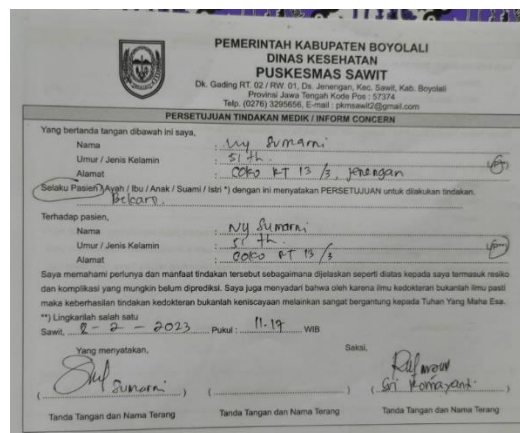 PEMERINTAH KABUPATEN BOYOLALI
DINAS KESEHATAN
PUSKESMAS SAWIT
Dk. Gading RT. 02 / RW. 01, Ds. Jenengan, Kec. Sawit, Kab. Boyolali
Provinsi Jawa Tengah Kode Pos : 57374
Telp. (0276) 3295656, E-mail : pkmsawit2@gmail.com
PERSETUJUAN TINDAKAN MEDIK / INFORM CONCERN
Yang bertanda tangan dibawah ini saya,
Nama : Ny Sumarni
Umur / Jenis Kelamin : 51 th.
Alamat : Coko RT 13 /3, Jenengan
Selaku Pasien / Ayah / Ibu / Anak / Suami / Istri *) dengan ini menyatakan PERSETUJUAN untuk dilakukan tindakan.
Terhadap pasien,
Nama : Ny Sumarni
Umur / Jenis Kelamin : 51 th.
Alamat : Coko RT 13 /3
Saya memahami perlunya dan manfaat tindakan tersebut sebagaimana dijelaskan seperti diatas kepada saya termasuk resiko
dan komplikasi yang mungkin belum diprediksi. Saya juga menyadari bahwa oleh karena ilmu kedokteran bukanlah ilmu pasti
maka keberhasilan tindakan kedokteran bukanlah keniscayaan melainkan sangat bergantung kepada Tuhan Yang Maha Esa.
**) Lingkarilah salah satu
Sawit, 2 - 2 - 2023 Pukul : 11.17 WIB
Yang menyatakan, Saksi,
( Sumarni ) ( ) ( Sri Komayanti )
Tanda Tangan dan Nama Terang Tanda Tangan dan Nama Terang Tanda Tangan dan Nama Terang